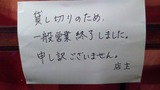 貸し切りのため、
一般営業終了しました。
申し訳ございません。
店主